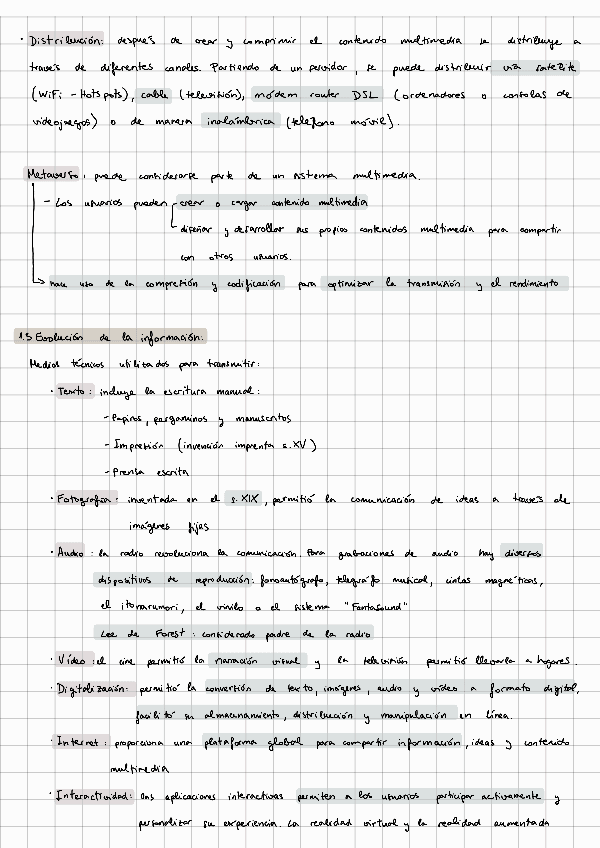 · Distribución: después de crear y comprimir el contenido multimedia se distribuye a
través de diferentes canales. Partiendo de un servidor, se puede distribuir vía satélite
(WiFi - Hotspots), cable (televisión), módem router DSL (ordenadores o consolas de
videojuegos) o de manera inalámbrica (teléfono móvil).
Metaverso: puede considerarse parte de un sistema multimedia.
- Los usuarios pueden crear o cargar contenido multimedia
diseñar y desarrollar sus propios contenidos multimedia para compartir
con otros usuarios.
hace uso de la compresión y codificación para optimizar la transmisión y el rendimiento
1.5 Evolución de la información:
Medios técnicos utilizados para transmitir:
· Texto: incluye la escritura manual:
- Papiros, pergaminos y manuscritos
- Impresión (invención imprenta s.XV)
- Prensa escrita
· Fotografía: inventada en el s.XIX, permitió la comunicación de ideas a través de
imágenes fijas
· Audio: la radio revoluciona la comunicación. Para grabaciones de audio hay diversos
dispositivos de reproducción: fonoautógrafo, telegráfo musical, cintas magnéticas,
el itonarumori, el vinilo o el sistema "Fantasound"
Lee de Forest: considerado padre de la radio
· Vídeo: el cine permitió la narración visual y la televisión permitió llevarla a hogares.
· Digitalización: permitió la conversión de texto, imágenes, audio y vídeo a formato digital,
facilitó su almacenamiento, distribución y manipulación en línea.
· Internet: proporciona una plataforma global para compartir información, ideas y contenido
multimedia
· Interactividad: las aplicaciones interactivas permiten a los usuarios participar activamente y
personalizar su experiencia. La realidad virtual y la realidad aumentada